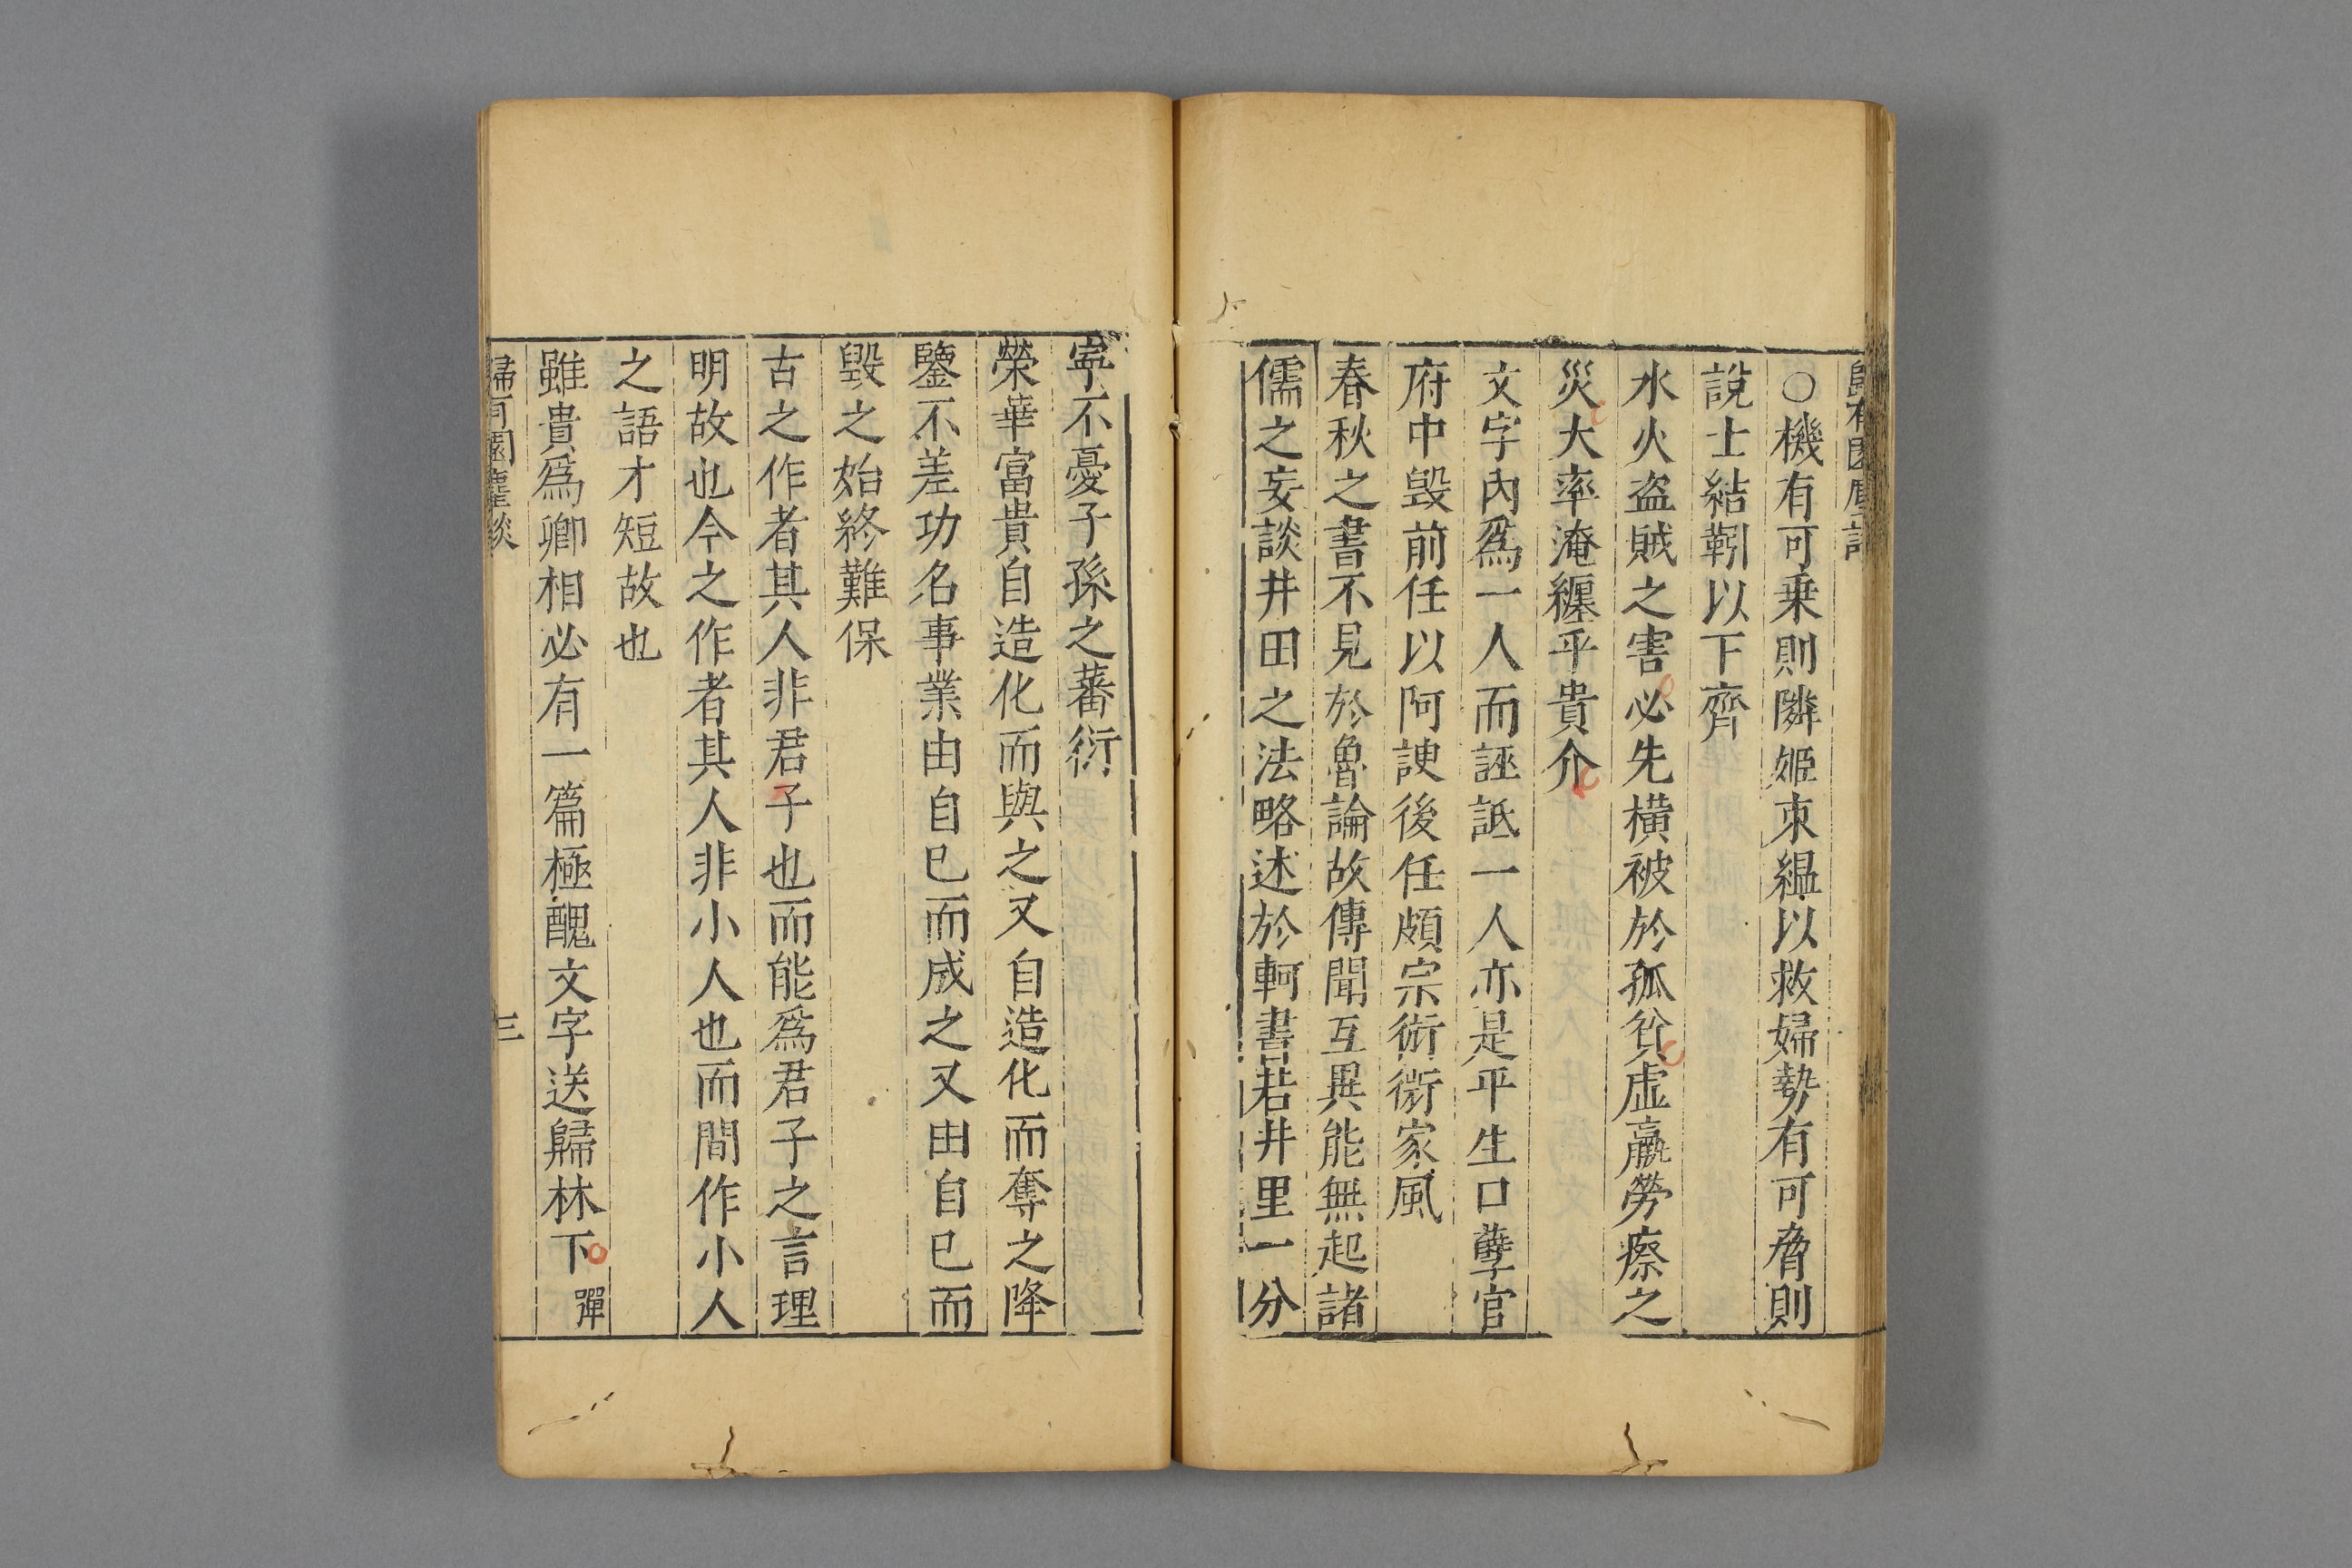 歸有園麈談
○機有可乗則隣姬朿緼以救婦勢有可脅則
說士結靷以下齊
水火盗賊之害必先橫被於孤貧虛羸勞瘵之
災大率淹纒乎貴介
文字內爲一人而誣詆一人亦是平生口孽官
府中毀前任以阿諛後任頗宗術衛家風
春秋之書不見於魯論故傳聞互異能無起諸
儒之妄談井田之法略述於軻書若井里一分
寧不憂子孫之蕃衍
榮華富貴自造化而與之又自造化而奪之降
鑒不差功名事業由自巳而成之又由自巳而
毀之始終難保
古之作者其人非君子也而能爲君子之言理
明故也今之作者其人非小人也而間作小人
之語才短故也
雖貴爲卿相必有一篇極醜文字送歸林下 彈
歸有園麈談
三